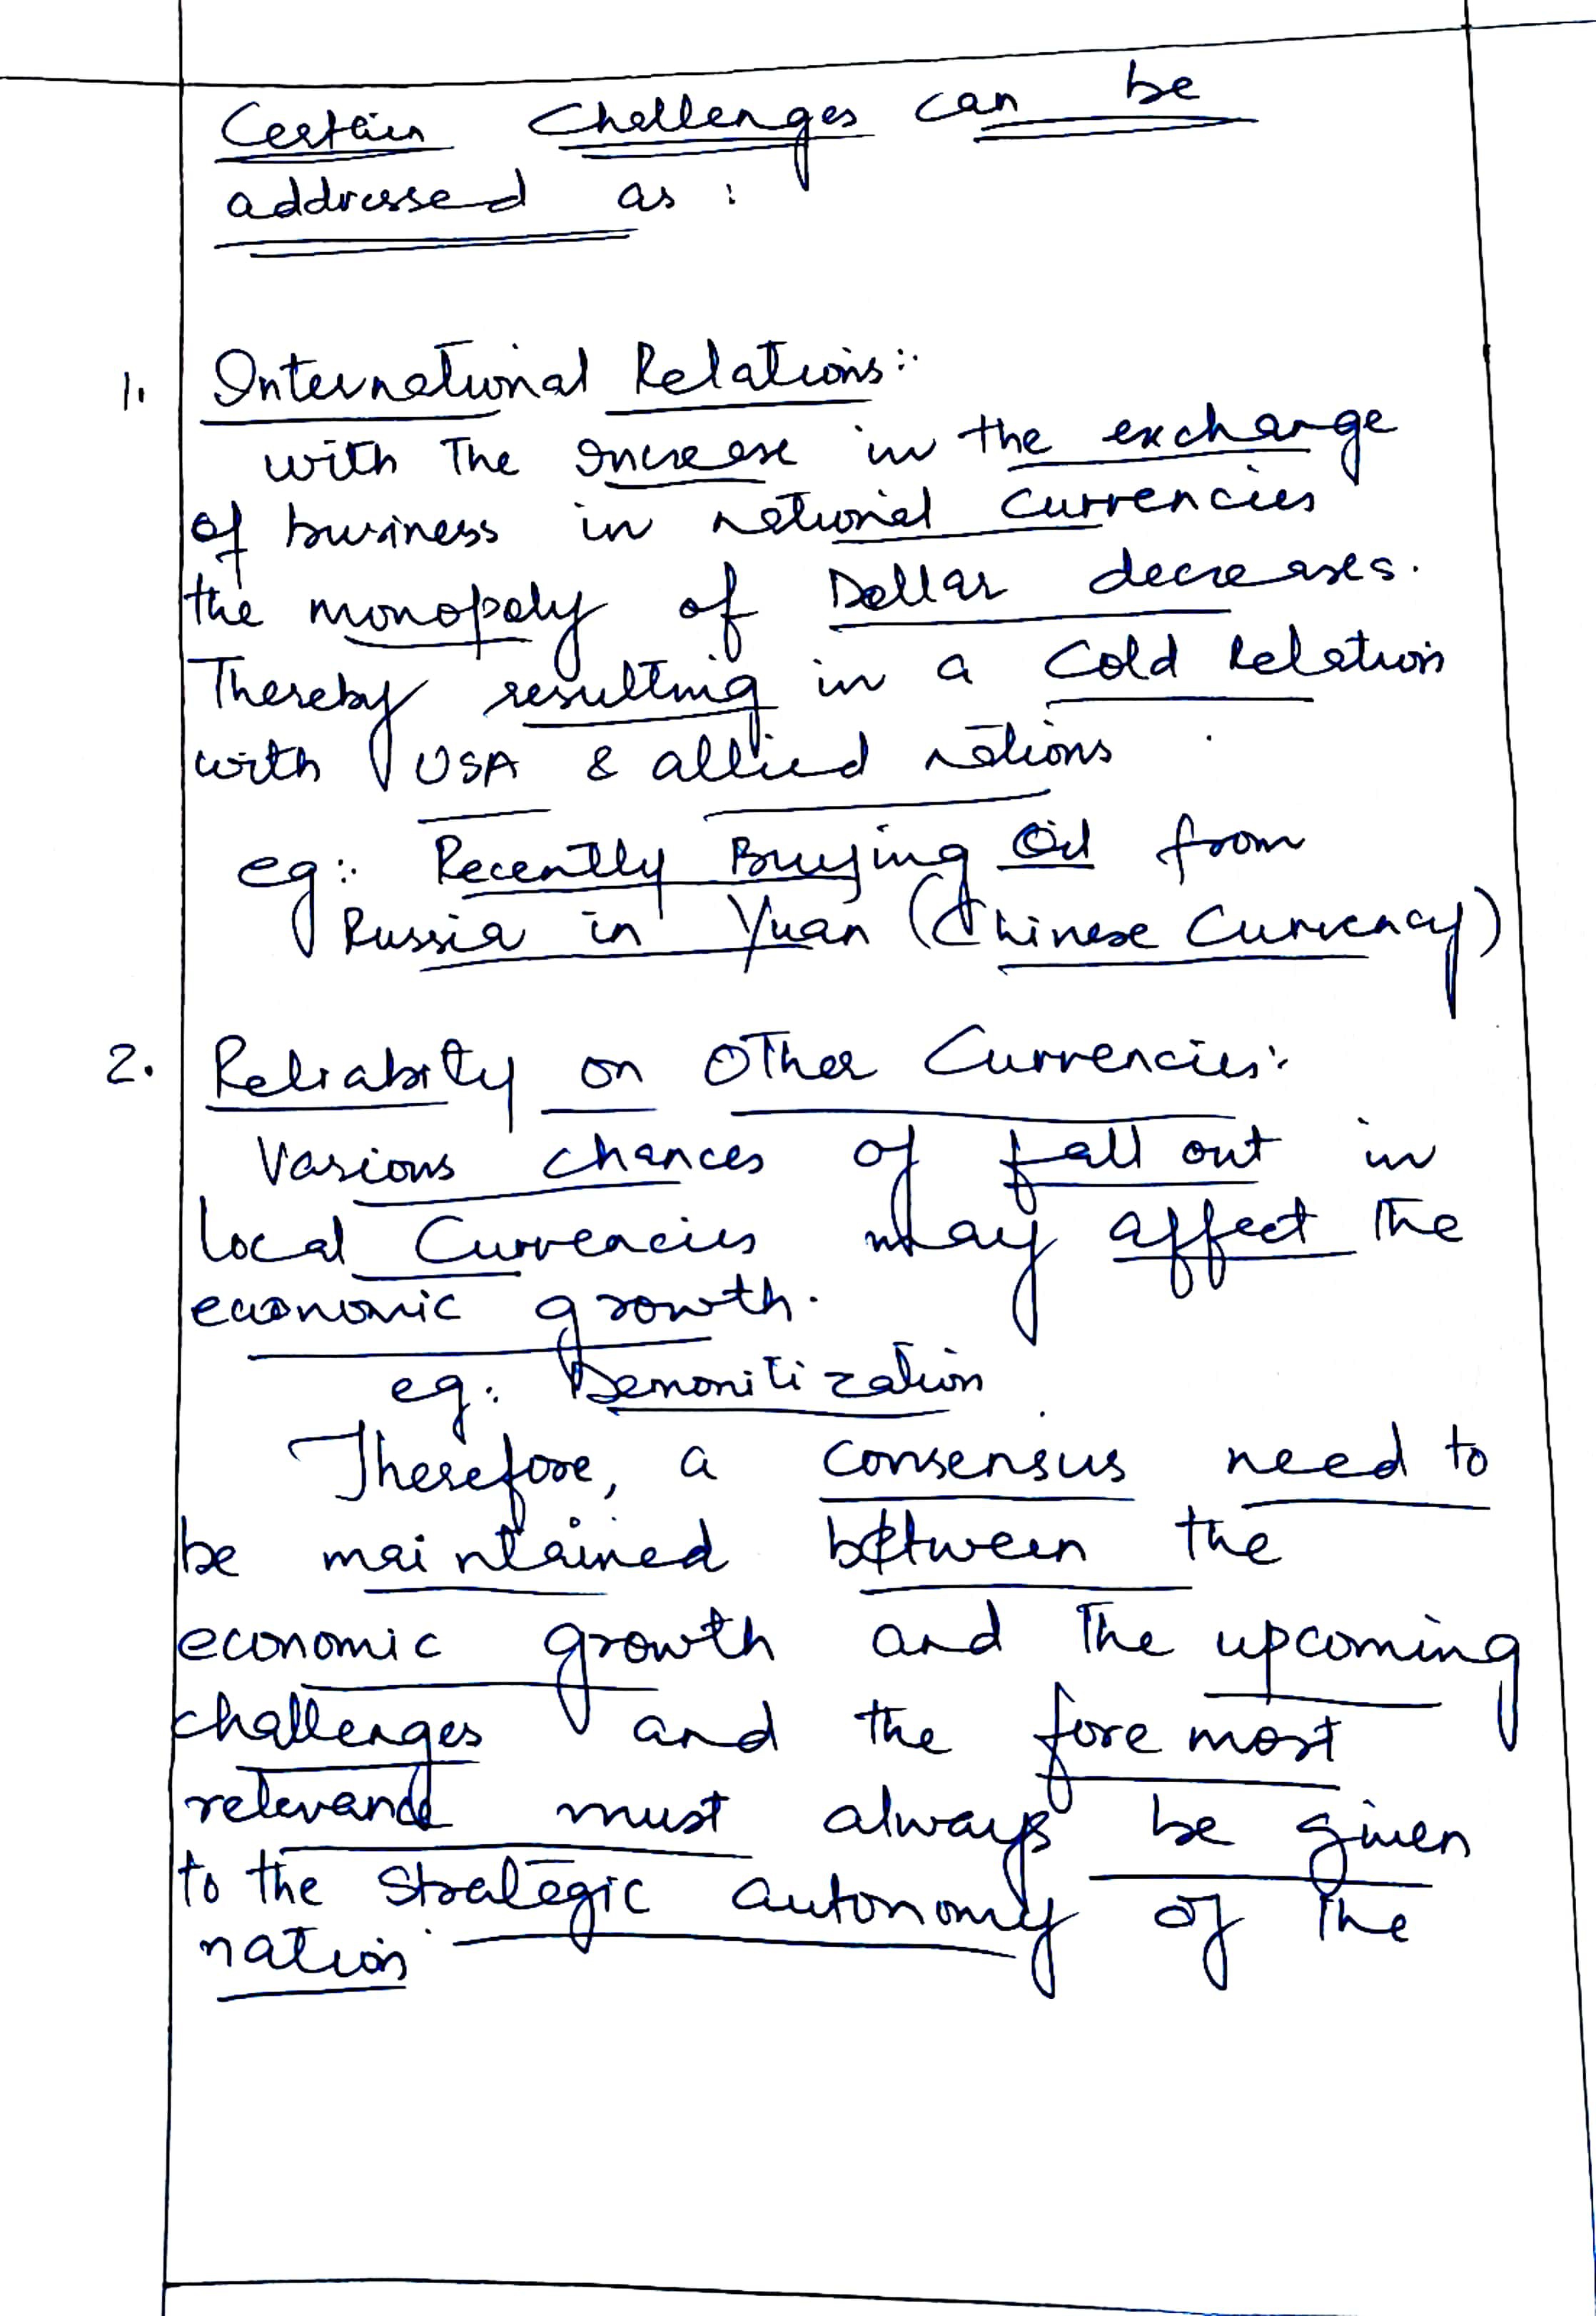 Certain Challenges can be
addressed as :
1. International Relations:
with the increase in the exchange
of business in national currencies
the monopoly of Dollar decreases.
Thereby resulting in a cold relation
with USA & allied nations
eg: Recently Buying Oil from
Russia in Yuan (Chinese Currency)
2. Reliabity on other Currencies:
Various chances of fall out in
local Currencies may affect the
economic growth.
eg: Demonitization
Therefore, a consensus need to
be maintained between the
economic growth and the upcoming
challenges and the fore most
relevance must always be given
to the strategic autonomy of the
nation